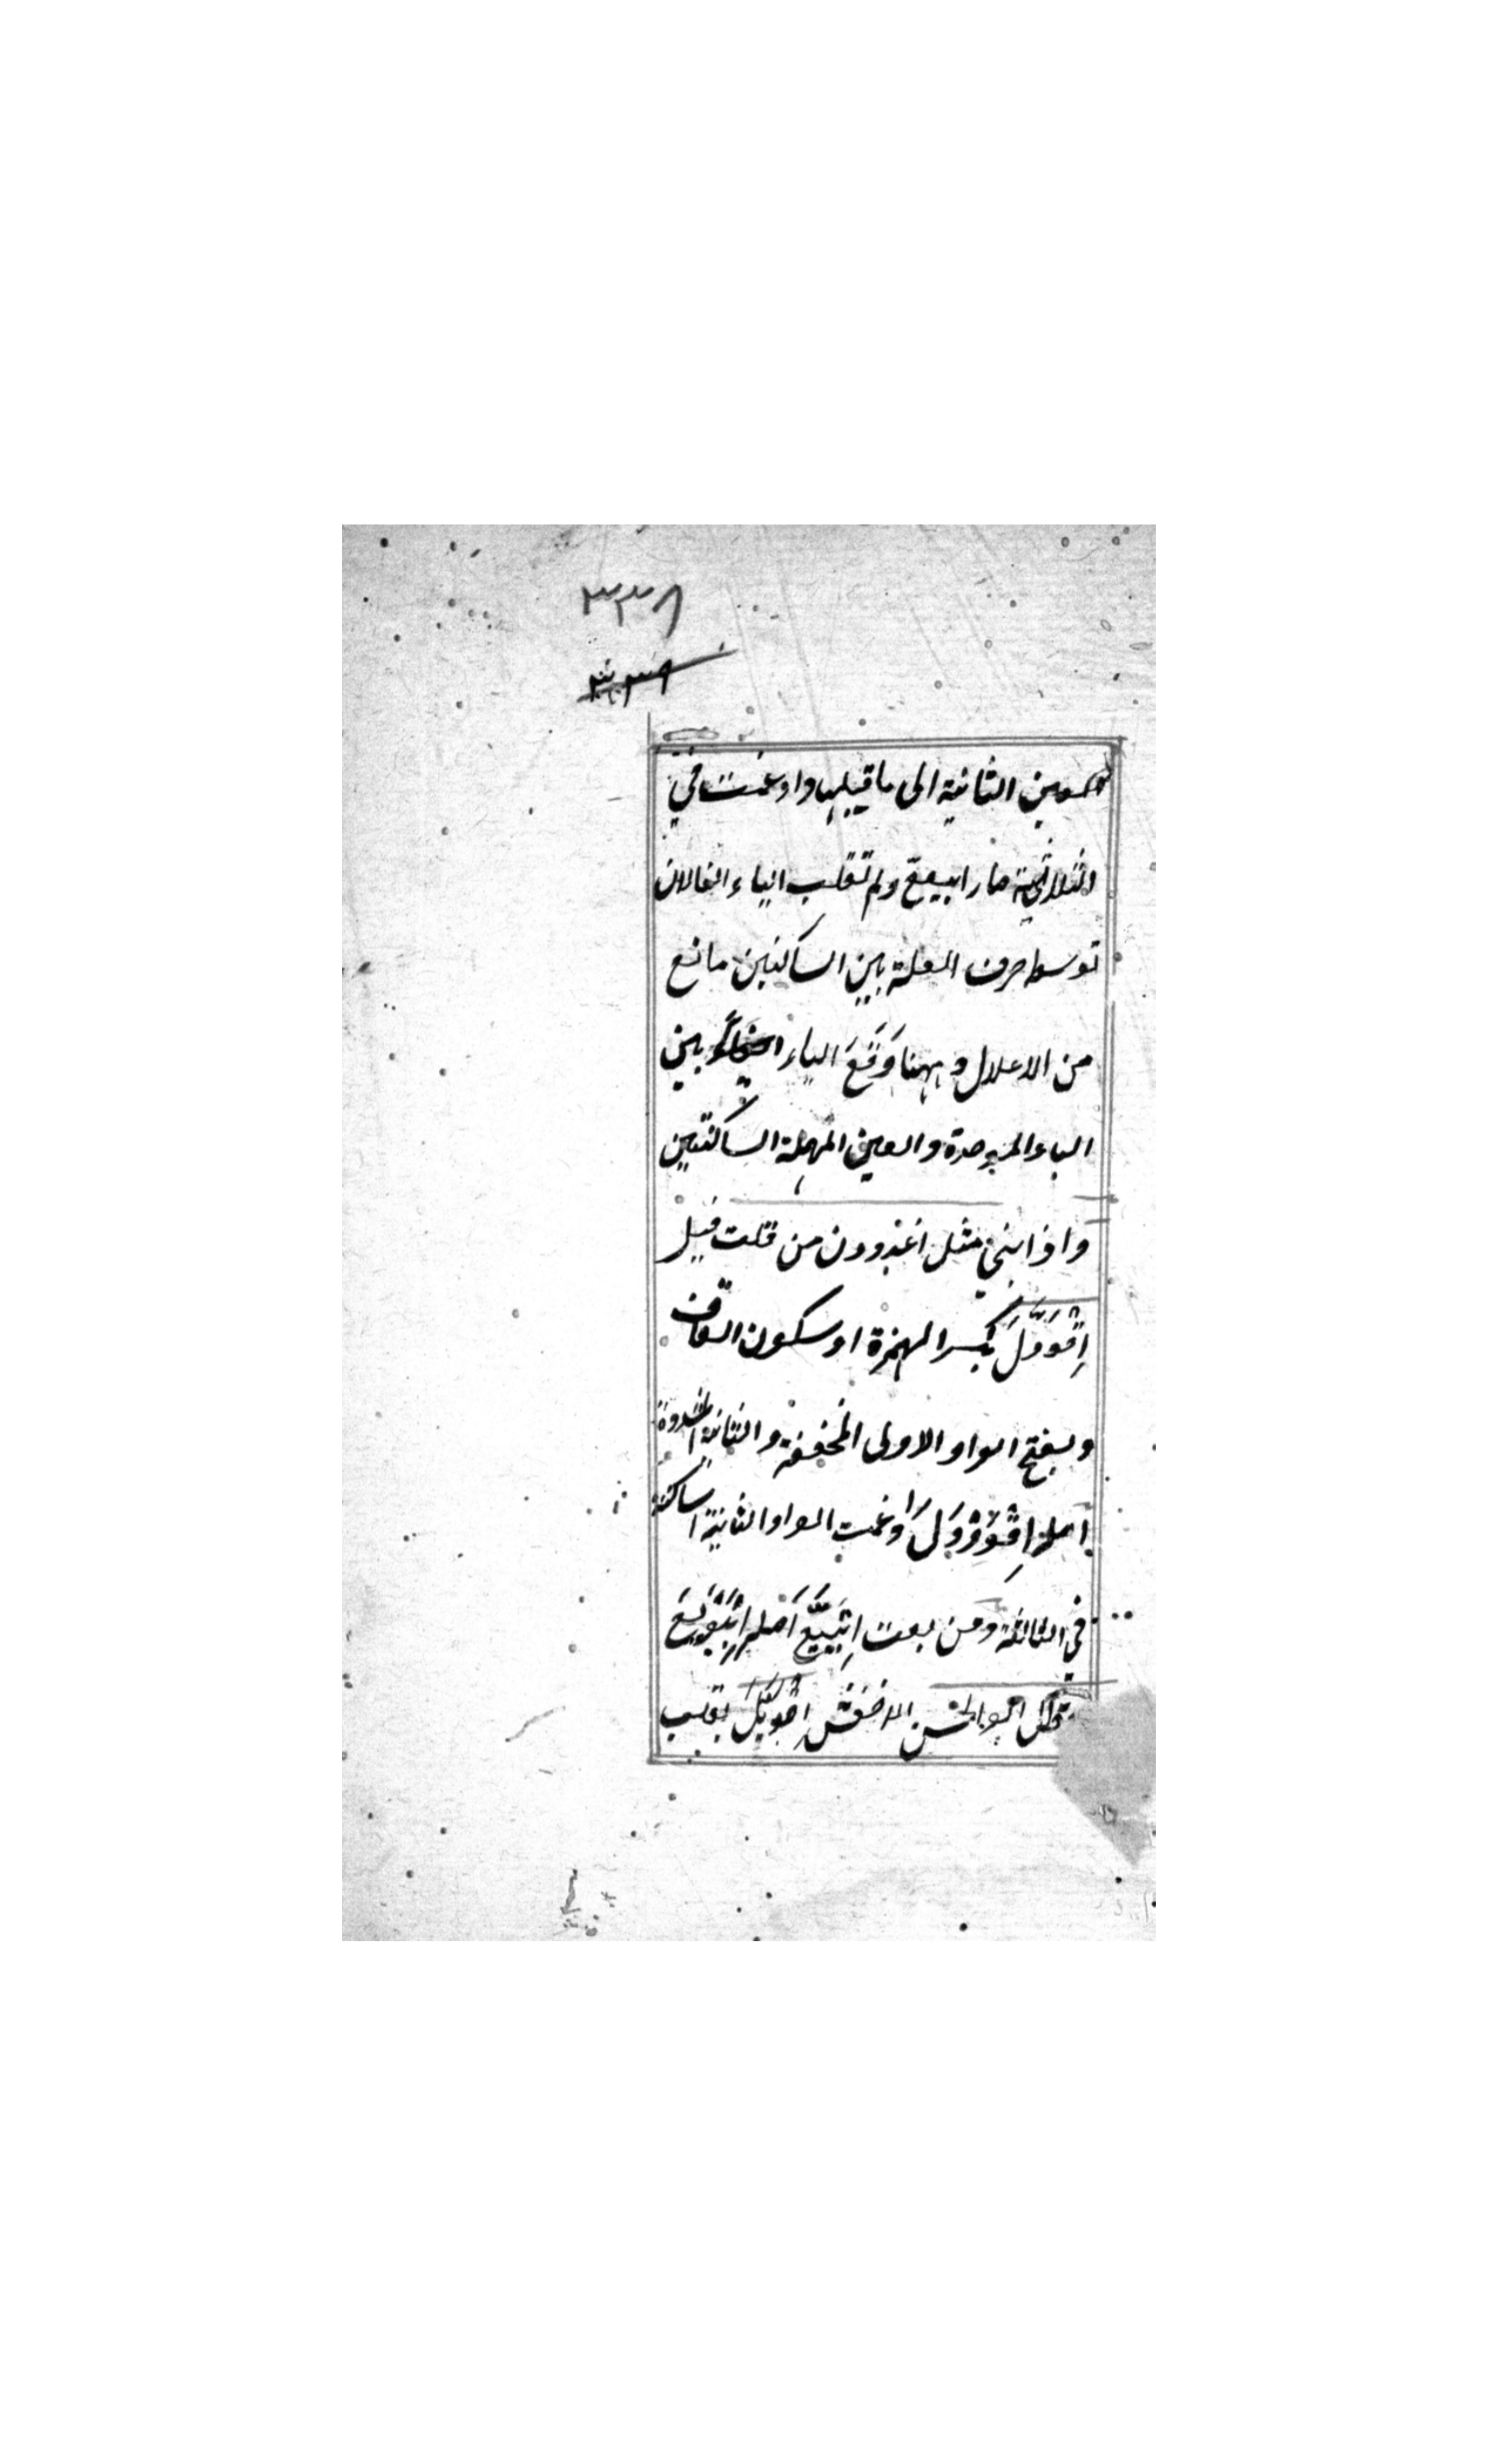 ٣٣٨
العين الثانية الى ما قبلها وادغمت في
الثلاثية صار ابيعع ولم تقلب الياء الفا لان
توسط حرف العلة بين الساكنين مانع
من الاعلال وههنا وَقَعَ الياء بين
الباء الموحدة والعين المهملة الساكنتين
واذا بني مثل اغدودن من قلت قيل
اِقْوَوَّلَ بكسر الهمزة وسكون القاف
وبفتح الواو الاولى المخففة والثانية المشددة
اصله اِقْوَوْوَلَ اُدغمت الواو الثانية الساكنة
في الثالثة ومن بعت اِبْيَيَّعَ اصله اِبْيَوْيَعَ
ابو الحسن الاخفش اِقْوَيَّلَ بقلب